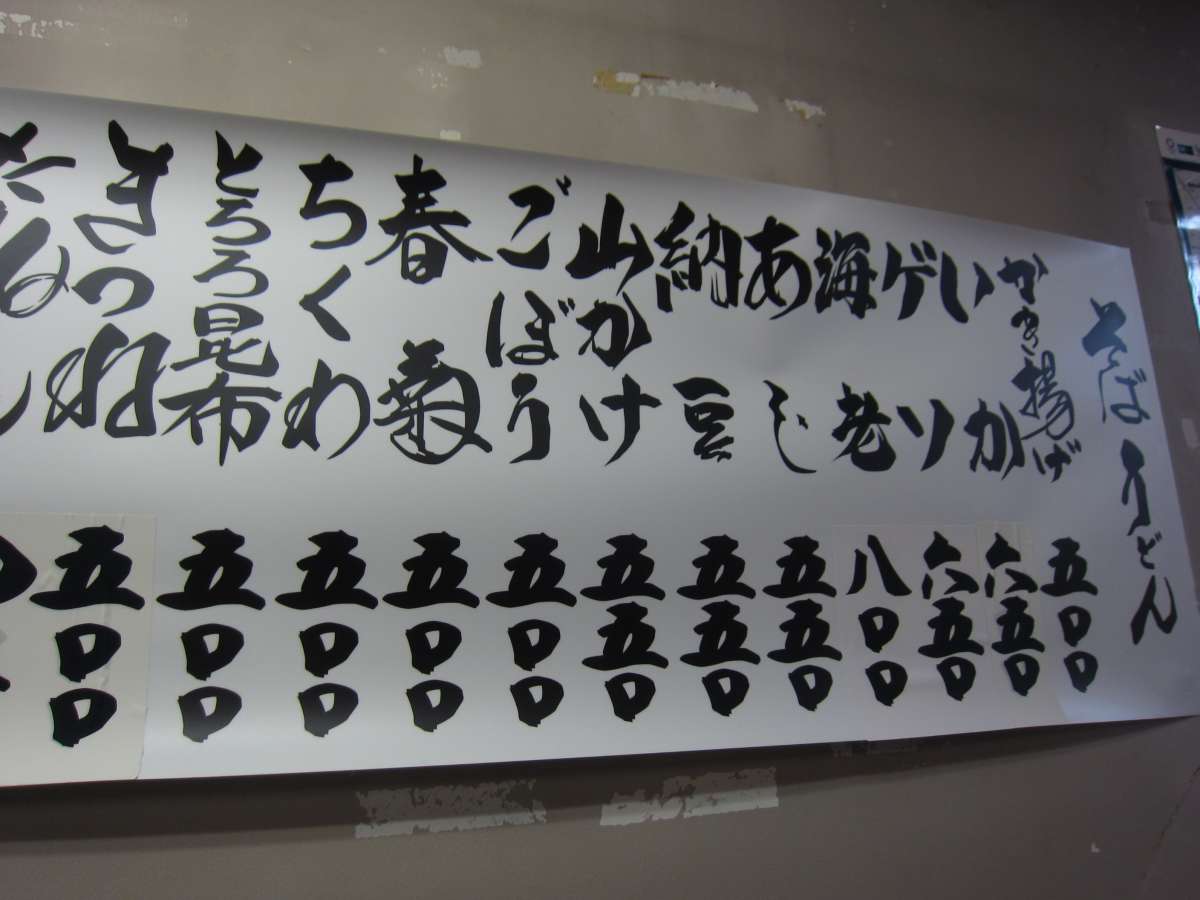 そばうどん
かき揚げ 五〇〇
いか 六五〇
ゲソ 六五〇
海老 八〇〇
あじ 五五〇
納豆 五五〇
山かけ 五五〇
ごぼう 五〇〇
春菊 五〇〇
ちくわ 五〇〇
とろろ昆布 五〇〇
きつね 五〇〇